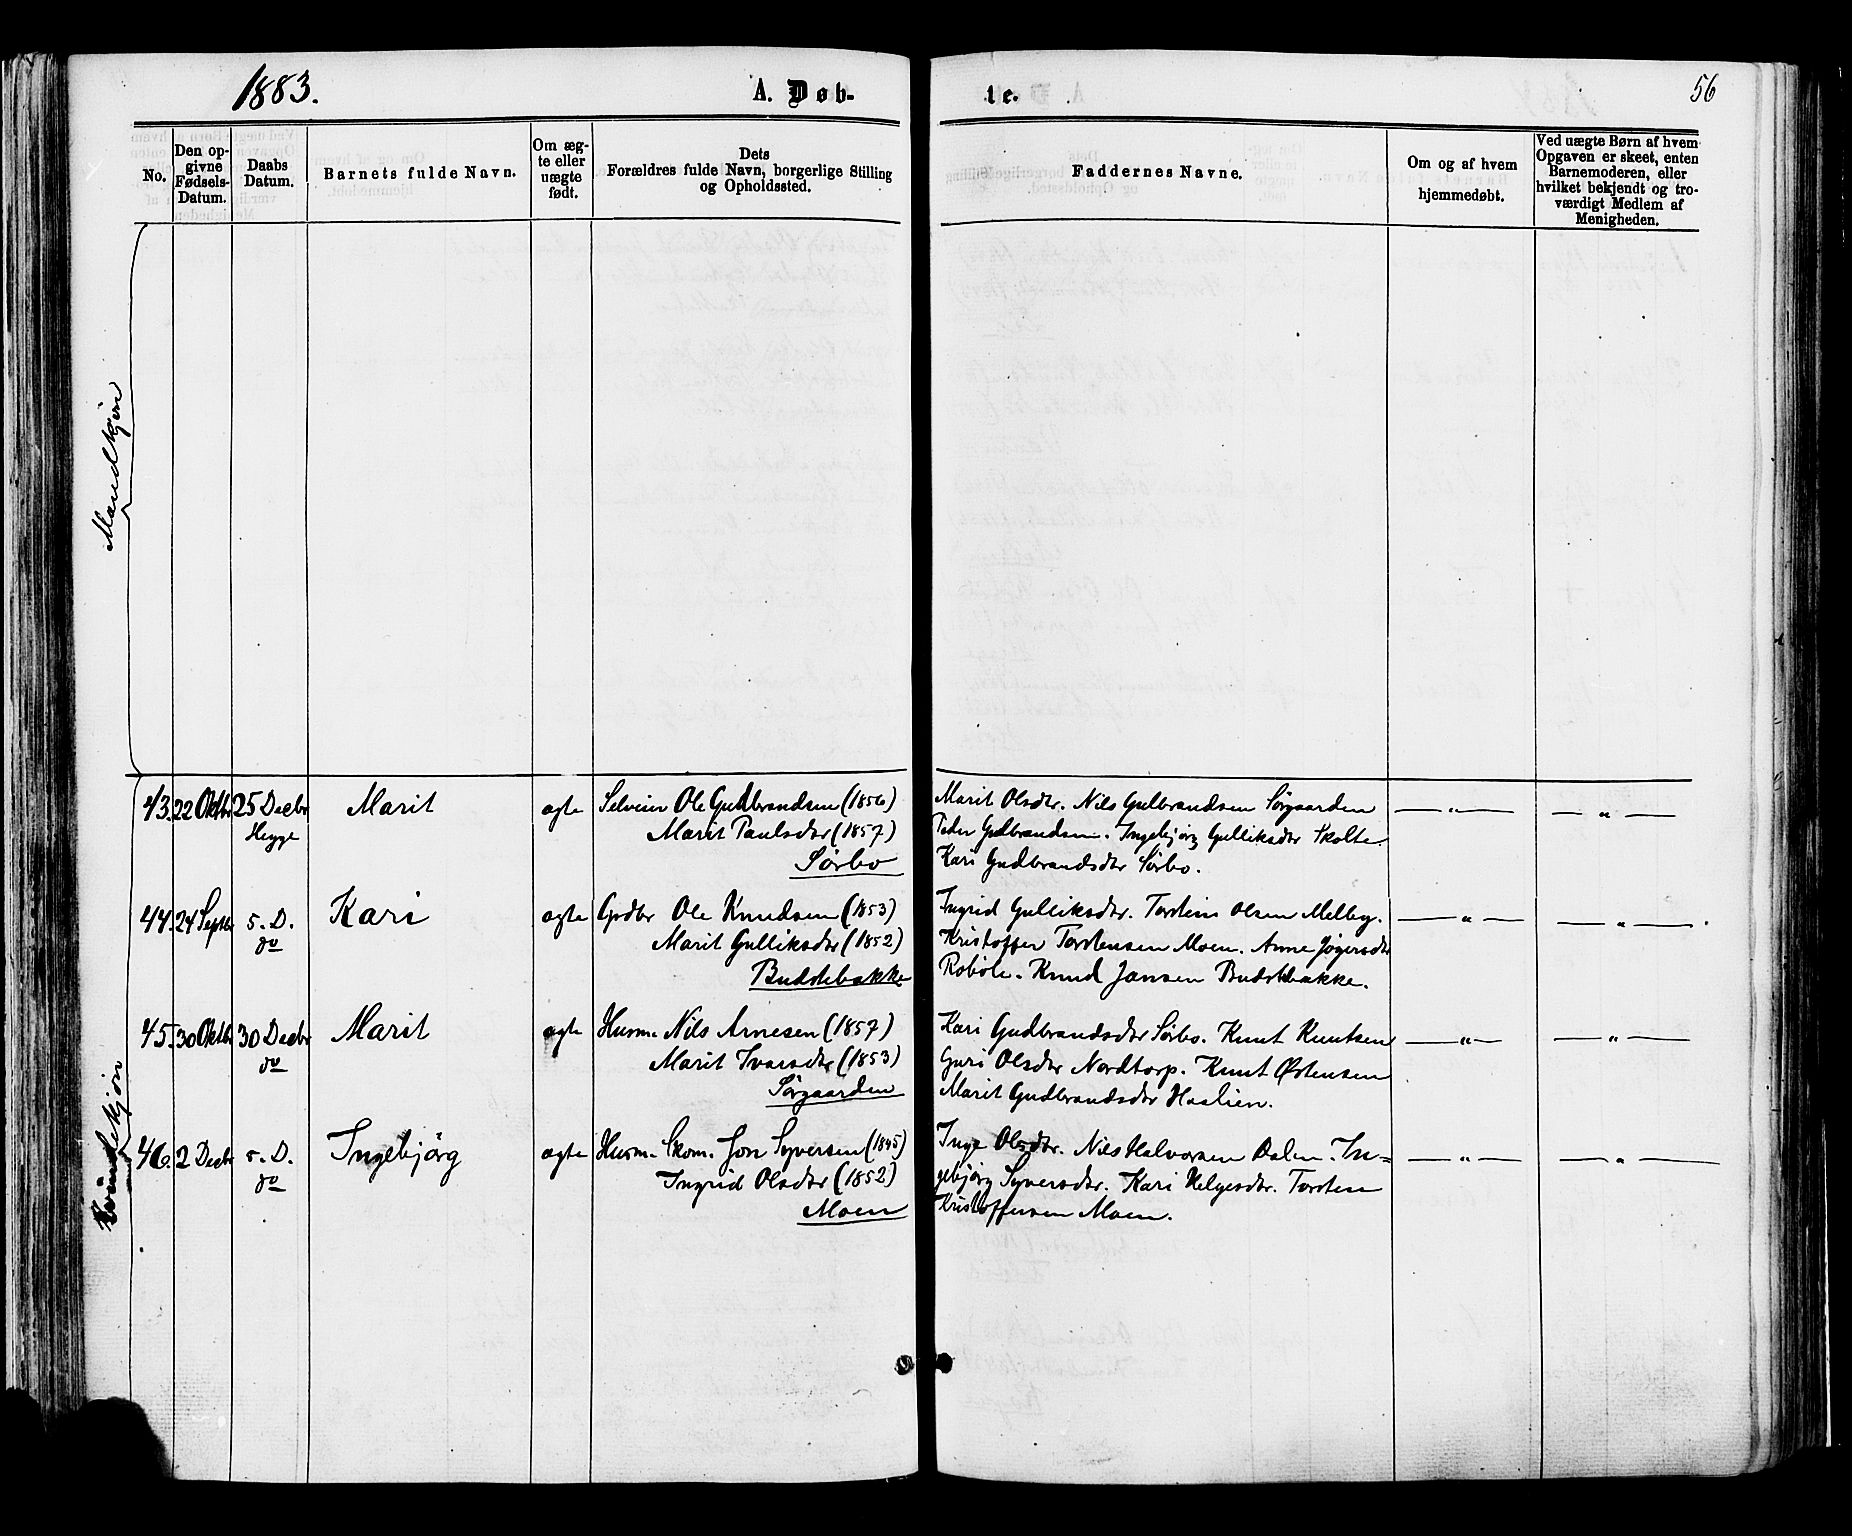 1883.
A. Døb-
te.
56
No.
Den op-
givne
Fødsels-
Datum.
Daabs
Datum.
Barnets fulde Navn.
Om æg-
te eller
uægte
født.
Dets
Forældres fulde Navn, borgerlige Stilling
og Opholdssted.
Faddernes Navne.
Om og af hvem
hjemmedøbt.
Ved uægte Børn af hvem
Opgaven er skeet, enten
Barnemoderen, eller
hvilket bekjendt og tro-
værdigt Medlem af
Menigheden.
Mandkjøn
Kvindekjøn
43. 22 Oktbr 25 Decbr Marit ægte Selveier Ole Gudbrandsen (1856) Marit Olsdtr. Nils Gulbrandsen Sørgaarden — " — — " —
Hegge Marit Paulsdtr (1857) Peder Gudbrandsen. Ingebjørg Gulliksdtr Skolte.
Sørbo Kari Gudbrandsdtr Sørbo.
44. 24 Septbr s. D. Kari ægte Grdbr Ole Knudsen (1853) Ingrid Gulliksdtr. Torstein Olsen Melby. — " — — " —
do Marit Gulliksdtr (1852) Kristoffer Torstensen Moen. Anne
Budstebakke Robøle. Knud Jansen Budstebakke.
45. 30 Oktbr 30 Decbr Marit ægte Husm. Nils Arnesen (1857) Kari Gudbrandsdtr Sørbo. Knut Knutsen — " — — " —
do Marit Ivarsdtr (1853) Guri Olsdtr Nordtorp. Knut Østensen
Sørgaarden Marit Gudbrandsdtr Haslien.
46. 2 Decbr s. D. Ingebjörg ægte Husm. Skom. Jon Syversen (1845) Inge Olsdtr. Nils Halvorsen Dalen. In=
do Ingrid Olsdtr (1852) gebjørg Syversdtr. Kari Helgesdtr. Torsten — " — — " —
Moen Kristoffersen Moen.